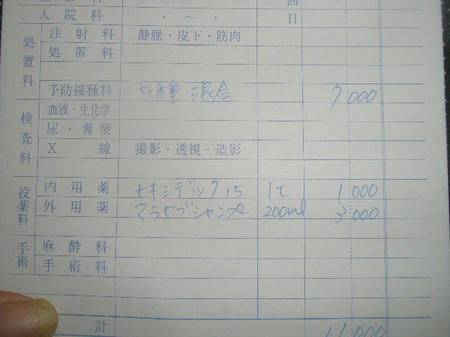 入院料 ・ ～ ・ 日
処置料 注射料 静脈・皮下・筋肉
処置料
予防接種料 5種混合 7000
検査料 血液・生化学
尿・糞便
X線 撮影・透視・造影
投薬料 内用薬 15 1T 1000
外用薬 マラセブシャンプー 200ml 3000
手術 麻酔料
手術料
計 11000